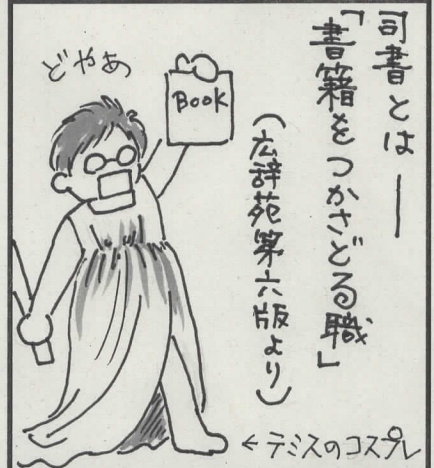 司書とは——
「書籍をつかさどる職」
（広辞苑第六版より）
どやあ
BOOK
←テミスのコスプレ